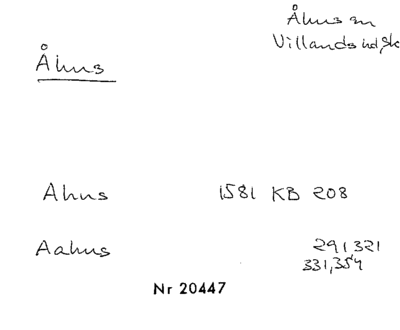 Åhus sn
Villands hd, Sk
Åhus
Ahus 1581 KB 208
Aahus 291 321
331,354
Nr 20447